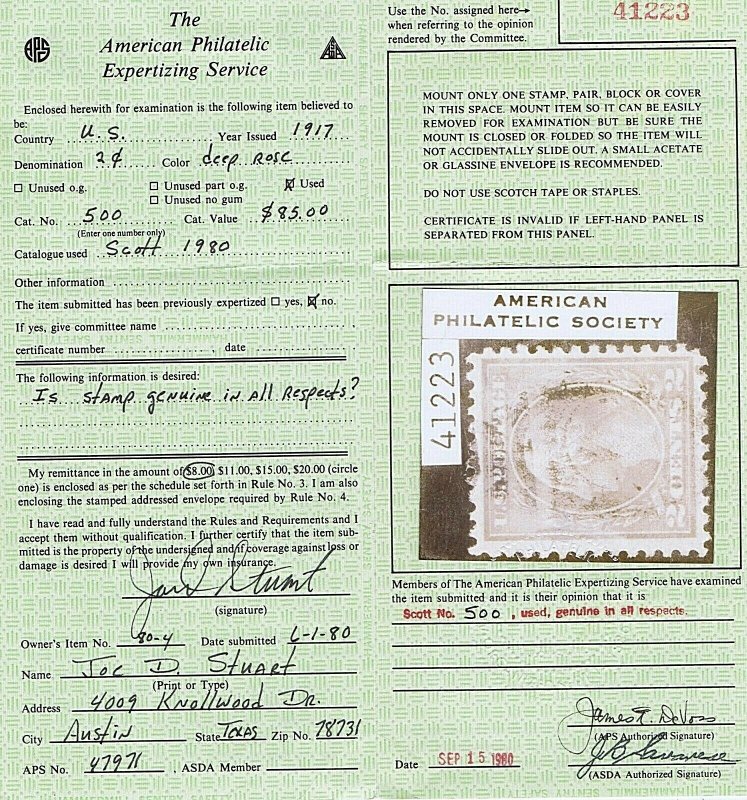 APS
The
American Philatelic
Expertizing Service
ASDA
Enclosed herewith for examination is the following item believed to
be:
Country U.S. Year Issued 1917
Denomination 2¢ Color deep rose
☐ Unused o.g. ☐ Unused part o.g. ☒ Used
☐ Unused no gum
Cat. No. 500 Cat. Value $85.00
(Enter one number only)
Catalogue used Scott 1980
Other information
The item submitted has been previously expertized ☐ yes, ☒ no.
If yes, give committee name
certificate number , date
The following information is desired:
Is stamp genuine in all respects?
My remittance in the amount of $8.00, $11.00, $15.00, $20.00 (circle
one) is enclosed as per the schedule set forth in Rule No. 3. I am also
enclosing the stamped addressed envelope required by Rule No. 4.
I have read and fully understand the Rules and Requirements and I
accept them without qualification. I further certify that the item sub-
mitted is the property of the undersigned and if coverage against loss or
damage is desired I will provide my own insurance.
Joe D. Stuart
(signature)
Owner's Item No. 80-4 Date submitted 6-1-80
Name Joe D. Stuart
(Print or Type)
Address 4009 Knollwood Dr.
City Austin State Texas Zip No. 78731
APS No. 47971 , ASDA Member
Use the No. assigned here→
when referring to the opinion
rendered by the Committee.
41223
MOUNT ONLY ONE STAMP, PAIR, BLOCK OR COVER
IN THIS SPACE. MOUNT ITEM SO IT CAN BE EASILY
REMOVED FOR EXAMINATION BUT BE SURE THE
MOUNT IS CLOSED OR FOLDED SO THE ITEM WILL
NOT ACCIDENTALLY SLIDE OUT. A SMALL ACETATE
OR GLASSINE ENVELOPE IS RECOMMENDED.
DO NOT USE SCOTCH TAPE OR STAPLES.
CERTIFICATE IS INVALID IF LEFT-HAND PANEL IS
SEPARATED FROM THIS PANEL.
AMERICAN
PHILATELIC SOCIETY
41223
2 CENTS 2
Members of The American Philatelic Expertizing Service have examined
the item submitted and it is their opinion that it is
Scott No. 500 , used, genuine in all respects.
James T. DeVoss
(APS Authorized Signature)
Date SEP 15 1980
(ASDA Authorized Signature)